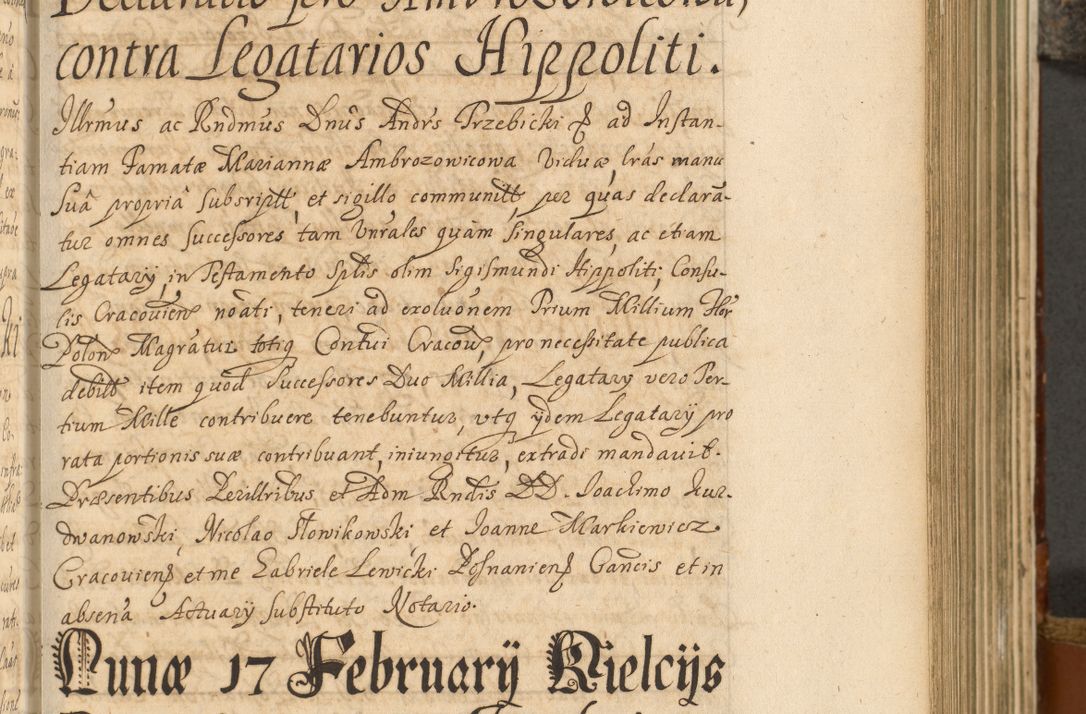 Declaratio pro Ambrozowicowa,
contra Legatarios Hippoliti.
Illrmus ac Rndmus Dnus Andrs Trzebicki ad Instan-
tiam Famatæ Mariannæ Ambrozowicowa Viduæ, lras manu
Suâ propriâ subsriptt, et sigillo communitt, per quas declara-
tur omnes Successores tam Unrales quàm singulares, ac etiam
Legatarÿ in Testamento Splis olim Sigismundi Hippoliti, Consu-
lis Cracovien noâti, teneri ad exoluonem Trium Millium Flor
Polon Magratui totiq Contui Cracov, pro necessitate publica
debitt item quod Successores Duo Millia, Legatarÿ vero Ter-
tium Mille contribuere tenebuntur, vtq ÿdem Legatarÿ pro
rata portionis suæ contribuant, iniungitur, extradi mandavit.
Præsentibus Perillribus et Adm Rndis DD. Ioachimo Kur-
dwanowski, Nicolao Słowikowski, et Ioanne Markiewicz
Cracovien et me Gabriele Lewicki Posnanien Cancis et in
absena Actuarÿ substituto Notario.
Lunæ 17 Februarÿ Kielcijs